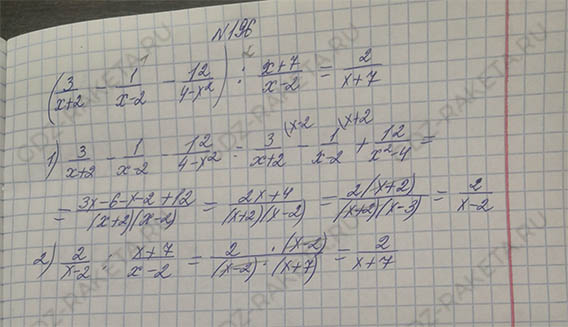 №196
(3/(x+2) - 1/(x-2) - 12/(4-x²)) : (x+7)/(x-2) = 2/(x+7)
1) 3/(x+2) - 1/(x-2) - 12/(4-x²) = 3/(x+2) (x-2 - 1/(x-2) (x+2 + 12/(x²-4) =
= (3x-6-x-2+12)/((x+2)(x-2)) = (2x+4)/((x+2)(x-2)) = 2(x+2)/((x+2)(x-3)) = 2/(x-2)
2) 2/(x-2) : (x+7)/(x-2) = (2 · (x-2))/((x-2) · (x+7)) = 2/(x+7)
GDZ-RAKETA.RU
GDZ-RAKETA.RU
GDZ-RAKETA.RU